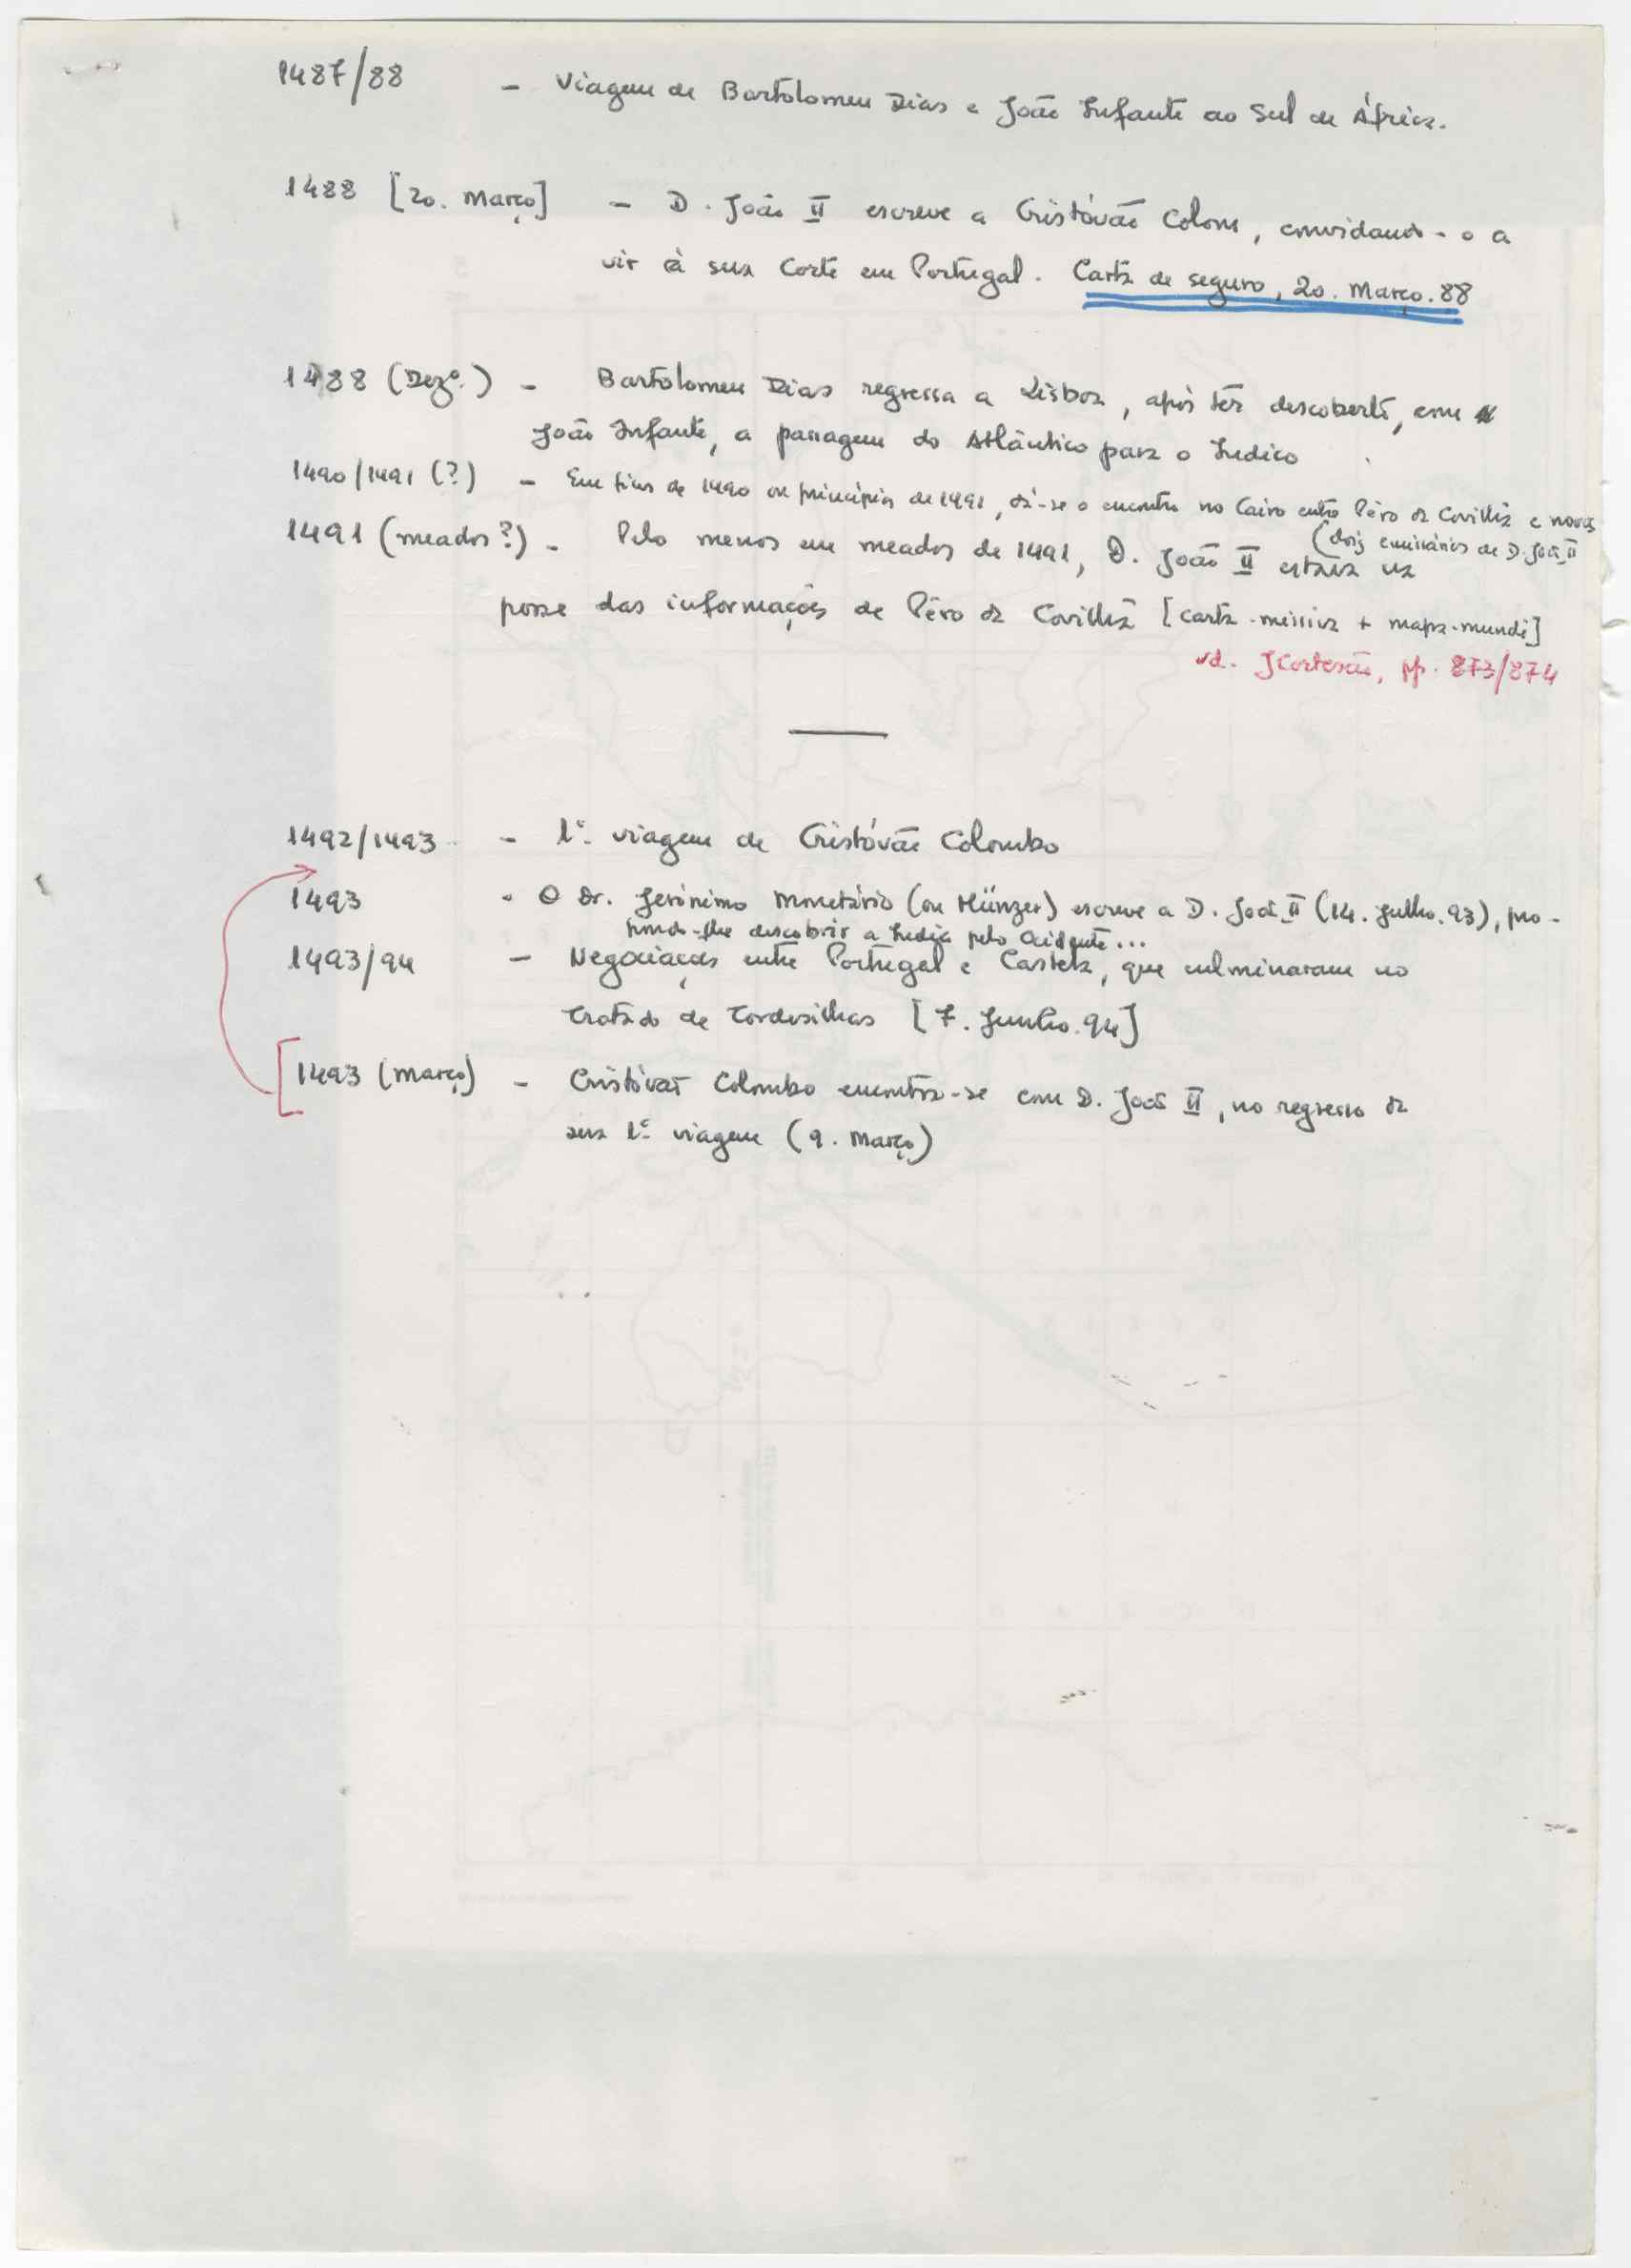 1487/88 - Viagem de Bartolomeu Dias e João Infante ao Sul de África.
1488 [20. Março] - D. João II escreve a Cristóvão Colom, convidando-o a
vir à sua Corte em Portugal. Carta de seguro, 20. Março. 88
1488 (Dezº.) - Bartolomeu Dias regressa a Lisboa, após ter descoberto, com
João Infante, a passagem do Atlântico para o Indico
1490/1491 (?) - Em fins de 1490 ou princípios de 1491, dá-se o encontro no Cairo entre Pêro da Covilhã e novos
(dois emissários de D. João II
1491 (meados?) - Pelo menos em meados de 1491, D. João II estava na
posse das informações de Pêro da Covilhã [carta-missiva + mapa-mundi]
vd. JCortesão, pp. 873/874
1492/1493 - 1ª viagem de Cristóvão Colombo
1493 - O Dr. Jerónimo Monetário (ou Münzer) escreve a D. João II (14. Julho. 93), pro-
pondo-lhe descobrir a India pelo Ocidente...
1493/94 - Negociações entre Portugal e Castela, que culminaram no
Tratado de Tordesilhas [7. Junho. 94]
[1493 (Março) - Cristóvão Colombo encontra-se com D. João II, no regresso da
sua 1ª viagem (9. Março)